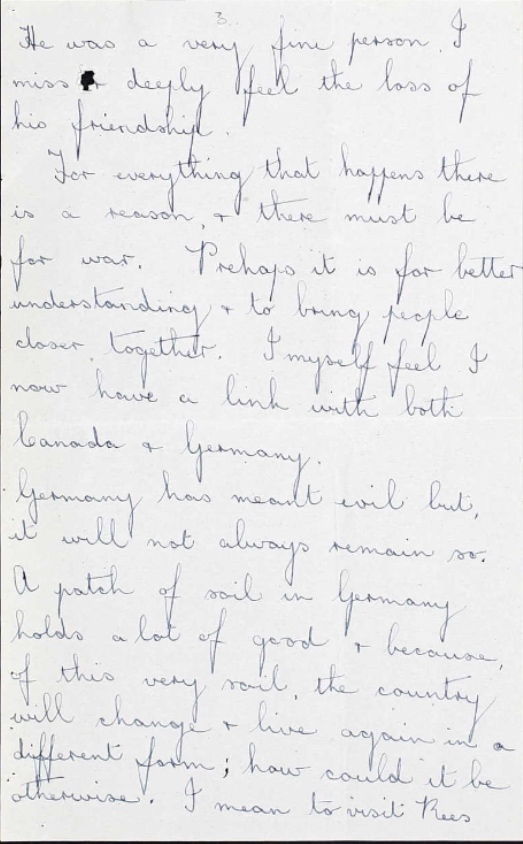 3.
He was a very fine person. I
miss + deeply feel the loss of
his friendship.
For everything that happens there
is a reason, + there must be
for war. Prehaps it is for better
understanding + to bring people
closer together. I myself feel I
now have a link with both
Canada + Germany.
Germany has meant evil but,
it will not always remain so.
A patch of soil in Germany
holds a lot of good + because,
of this very soil, the country
will change + live again in a
different form; how could it be
otherwise. I mean to visit Rees